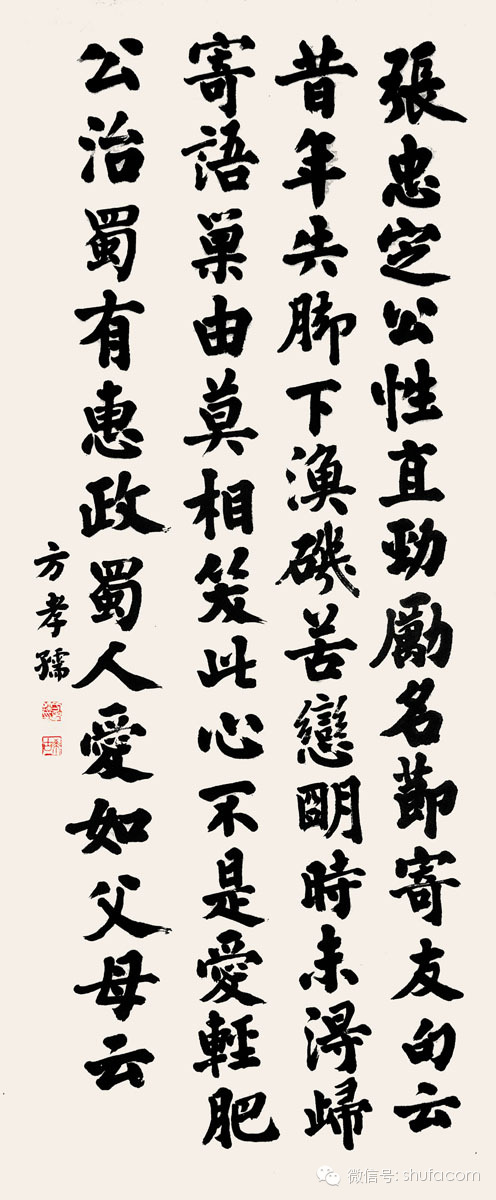 張忠定公性直勁勵名節寄友句云
昔年失脚下漁磯苦戀明時未得歸
寄語巢由莫相笑此心不是愛輕肥
公治蜀有惠政蜀人愛如父母云
方孝孺
微信号: shufacom